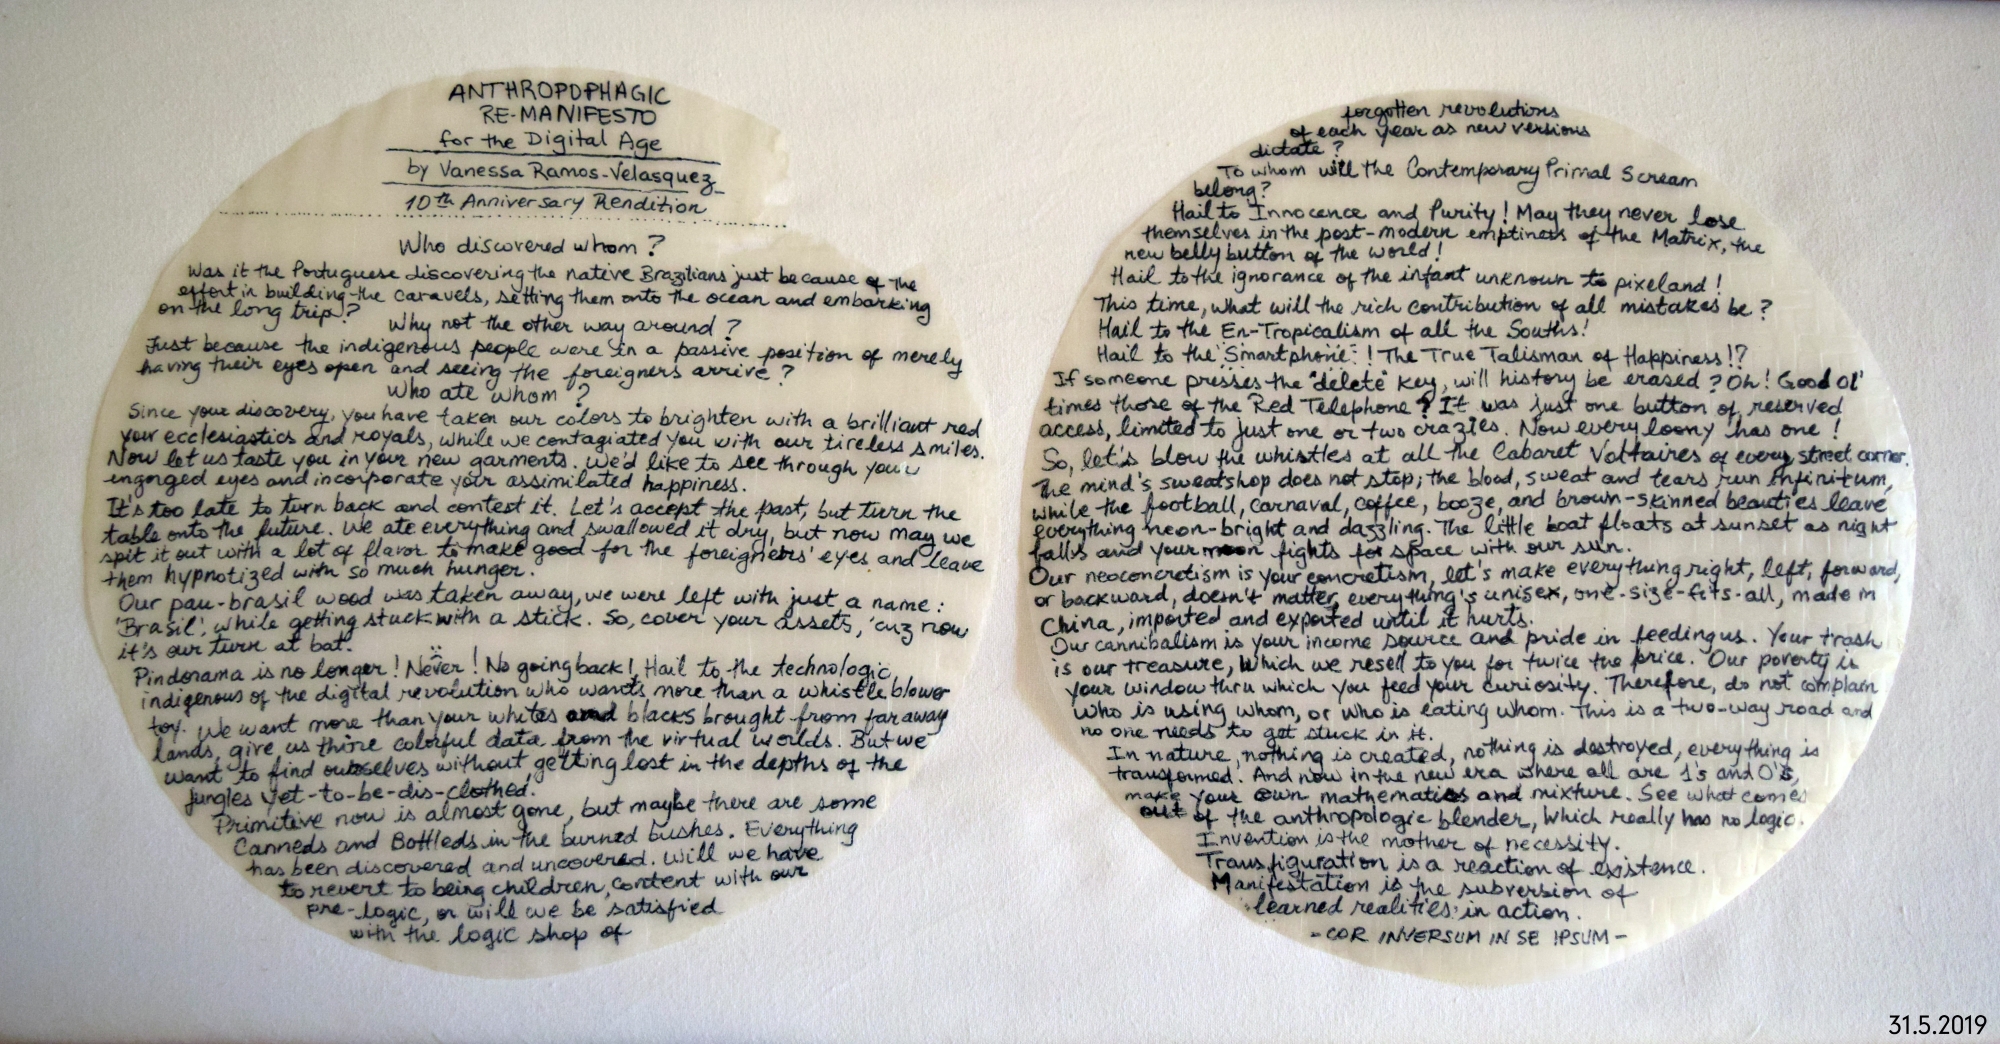 ANTHROPOPHAGIC
RE-MANIFESTO
for the Digital Age
by Vanessa Ramos-Velasquez
10th Anniversary Rendition
Who discovered whom?
Was it the Portuguese discovering the native Brazilians just because of the
effort in building the caravels, setting them onto the ocean and embarking
on the long trip?
Why not the other way around?
Just because the indigenous people were in a passive position of merely
having their eyes open and seeing the foreigners arrive?
Who ate whom?
Since your discovery, you have taken our colors to brighten with a brilliant red
your ecclesiastics and royals, while we contagiated you with our tireless smiles.
Now let us taste you in your new garments. We'd like to see through your
engorged eyes and incorporate your assimilated happiness.
It's too late to turn back and contest it. Let's accept the past, but turn the
table onto the future. We ate everything and swallowed it dry, but now may we
spit it out with a lot of flavor to make good for the foreigners' eyes and leave
them hypnotized with so much hunger.
Our pau-brasil wood was taken away, we were left with just a name:
'Brasil', while getting stuck with a stick. So, cover your assets, 'cuz now
it's our turn at bat.
Pindorama is no longer! Never! No going back! Hail to the technologic
indigenous of the digital revolution who wants more than a whistle blower
toy. We want more than your whites and blacks brought from far away
lands, give us thine colorful data from the virtual worlds. But we
want to find ourselves without getting lost in the depths of the
jungles yet-to-be-dis-clothed.
Primitive now is almost gone, but maybe there are some
Canneds and Bottleds in the burned bushes. Everything
has been discovered and uncovered. Will we have
to revert to being children, content with our
pre-logic, or will we be satisfied
with the logic shop of
forgotten revolutions
of each year as new versions
dictate?
To whom will the Contemporary Primal Scream
belong?
Hail to Innocence and Purity! May they never lose
themselves in the post-modern emptiness of the Matrix, the
new belly button of the world!
Hail to the ignorance of the infant unknown to pixeland!
This time, what will the rich contribution of all mistakes be?
Hail to the En-Tropicalism of all the Souths!
Hail to the "Smartphone"! The True Talisman of Happiness!?
If someone presses the "delete" key, will history be erased? Oh! Good Ol'
times those of the Red Telephone? It was just one button of reserved
access, limited to just one or two crazies. Now every loony has one!
So, let's blow the whistles at all the Cabaret Voltaires of every street corner.
The mind's sweatshop does not stop; the blood, sweat and tears run infinitum,
while the football, carnaval, coffee, booze, and brown-skinned beauties leave
everything neon-bright and dazzling. The little boat floats at sunset as night
falls and your moon fights for space with our sun.
Our neoconcretism is your concretism, let's make everything right, left, forward,
or backward, doesn't matter, everything's unisex, one-size-fits-all, made in
China, imported and exported until it hurts.
Our cannibalism is your income source and pride in feeding us. Your trash
is our treasure, which we resell to you for twice the price. Our poverty is
your window thru which you feed your curiosity. Therefore, do not complain
who is using whom, or who is eating whom. This is a two-way road and
no one needs to get stuck in it.
In nature, nothing is created, nothing is destroyed, everything is
transformed. And now in the new era where all are 1's and 0's,
make your own mathematics and mixture. See what comes
out of the anthropologic blender, which really has no logic.
Invention is the mother of necessity.
Transfiguration is a reaction of existence.
Manifestation is the subversion of
learned realities in action.
-COR INVERSUM IN SE IPSUM-
31.5.2019